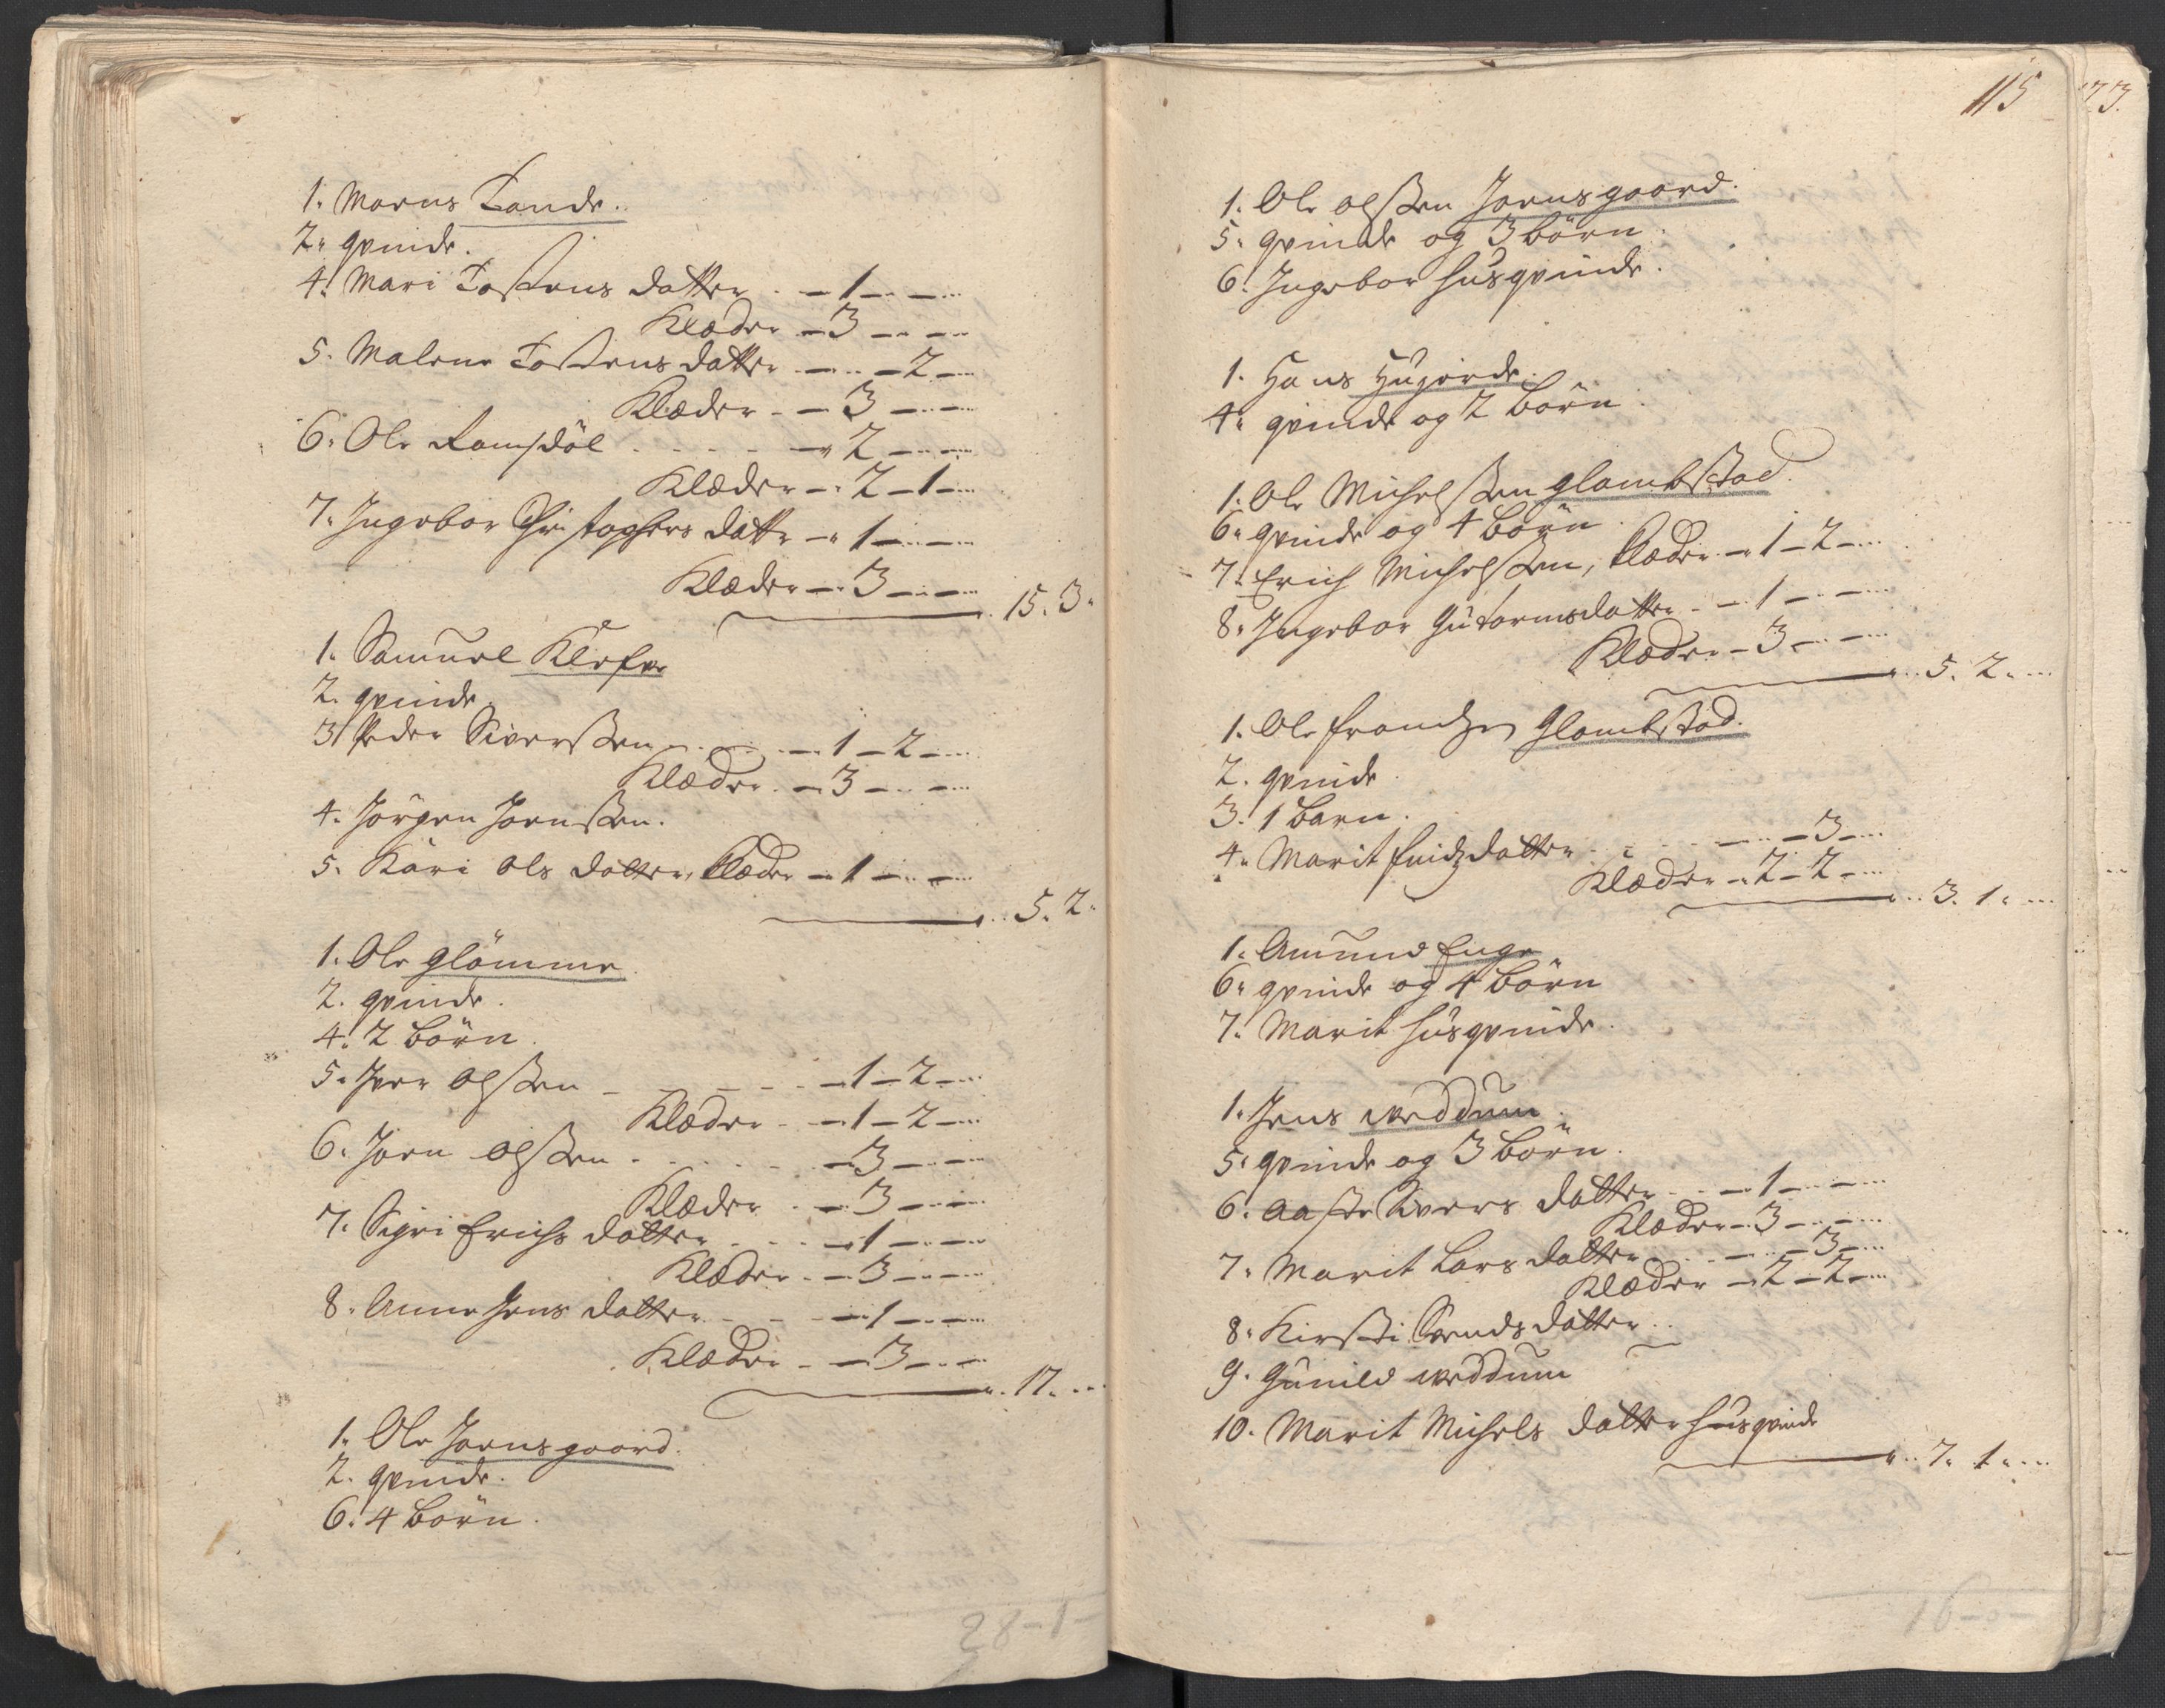 1. Marus Tande.
2. qvinde.
4. Mari Tostens datter - 1 - -
Klæder - 3 - -
5. Malene Tostens datter - - 2 -
Klæder - 3 - -
6. Ole Ramsdöl - 2 - -
Klæder - 2 - 1 -
7. Ingebor Christophers datter - 1 - -
Klæder - 3 - -
15. 3.
1. Samuel Klefve
2. qvinde
3. Peder Siverssen - 1 - 2 -
Klæder - 3 - -
4. Jörgen Joenssen.
5. Kari Ols datter, Klæder - 1 - -
5. 2.
1. Ole Glömme.
2. qvinde.
4. 2 Börn.
5. Iver Olssen - 1 - 2 -
Klæder - 1 - 2 -
6. Joen Olssen - 3 - -
Klæder - 3 - -
7. Sigri Erichs datter - 1 - -
Klæder - 3 - -
8. Anne Jens datter - 1 - -
Klæder - 3 - -
17. -
1. Ole Joensgaard.
2. qvinde.
6. 4 Börn.
28-1-
115
1. Ole Olssen Joensgaard.
5. qvinde og 3 börn.
6. Ingebor husqvinde.
1. Hans
4. qvinde og 2 Börn.
1. Ole Michelssen Glambstad.
6. qvinde og 4 Börn.
7. Erich Michelssen, Klæder - 1 - 2 -
8. Ingebor Gutormsdatter - 1 - -
Klæder - 3 - -
5. 2. -
1. Ole Frandzen Glambstad.
2. qvinde.
3. 1 Barn.
4. Marit datter - - 3 -
Klæder - 2 - 2 -
3. 1. -
1. Amund Enge
6. qvinde og 4 Börn
7. Marit husqvinde.
1. Jens Weddum.
5. qvinde og 3 Börn.
6. Aaste Sivers datter - 1 - -
Klæder - 3 - -
7. Marit Lars datter - - 3 -
Klæder - 2 - 2 -
8. Kirsti Svends datter.
9. Gunild Weddum
10. Marit Michels datter husqvinde
7. 1. -
16-0-